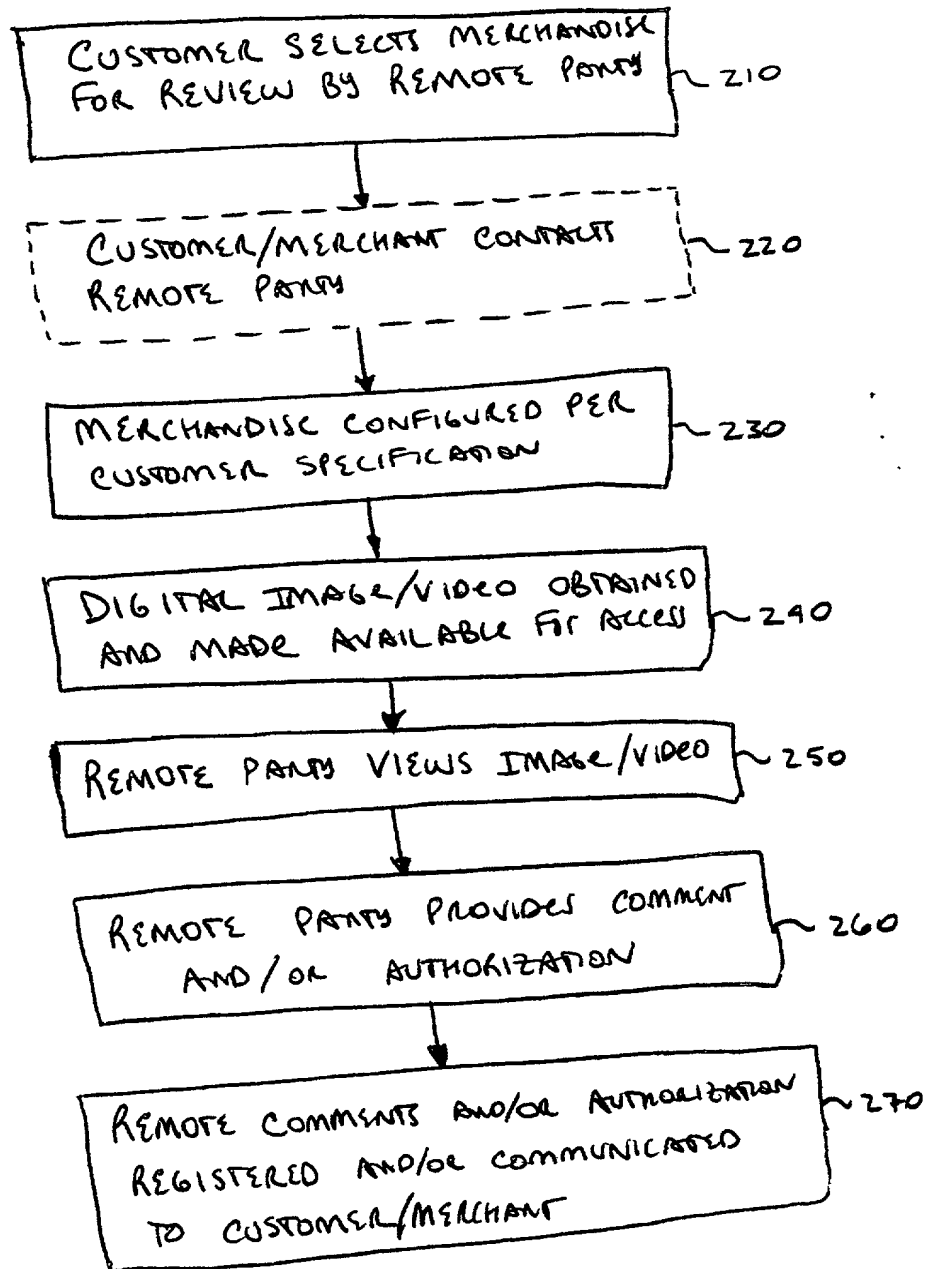 CUSTOMER SELECTS MERCHANDISE
FOR REVIEW BY REMOTE PARTY
210
CUSTOMER/MERCHANT CONTACTS
REMOTE PARTY
220
MERCHANDISE CONFIGURED PER
CUSTOMER SPECIFICATION
230
DIGITAL IMAGE/VIDEO OBTAINED
AND MADE AVAILABLE FOR ACCESS
240
REMOTE PARTY VIEWS IMAGE/VIDEO
250
REMOTE PARTY PROVIDES COMMENT
AND/OR AUTHORIZATION
260
REMOTE COMMENTS AND/OR AUTHORIZATION
REGISTERED AND/OR COMMUNICATED
TO CUSTOMER/MERCHANT
270